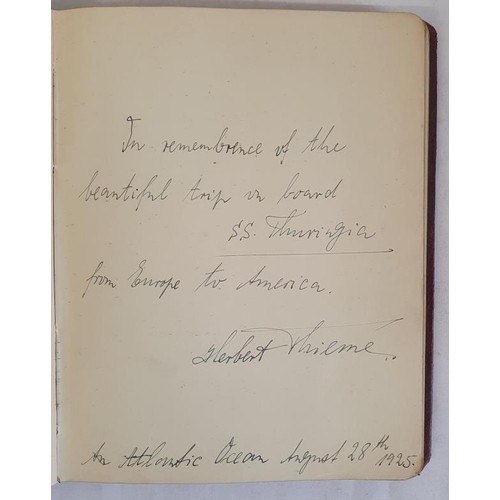 In remembrence of the
beautiful trip on board
S.S. Thuringia
from Europe to America.
Herbert Thieme.
An Atlantic Ocean August 28th 1925.